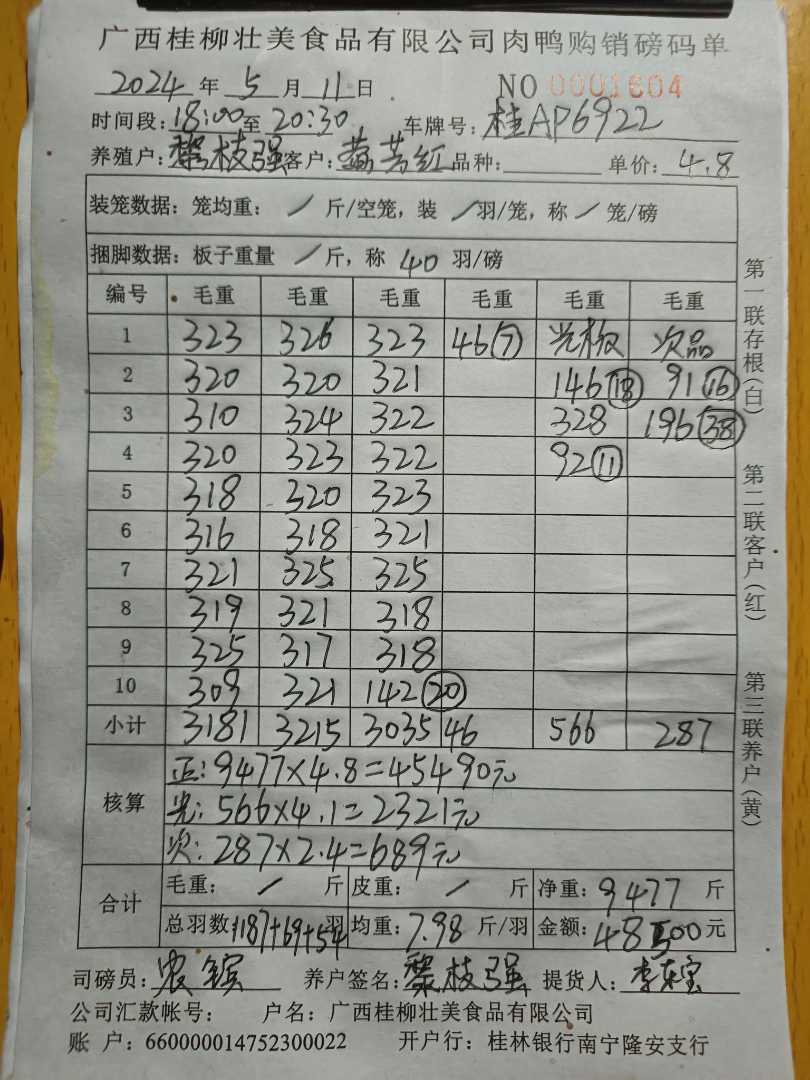 广西桂柳壮美食品有限公司肉鸭购销磅码单
2024 年 5 月 11 日 NO 0001604
时间段:18:00至 20:30 车牌号:桂AP6922
养殖户:黎枝强 客户:黄芳红 品种: 单价:4.8
装笼数据:笼均重: / 斤/空笼,装 / 羽/笼,称 / 笼/磅
捆脚数据:板子重量 / 斤,称 40 羽/磅
编号 毛重 毛重 毛重 毛重 毛重 毛重
1 323 326 323 46(7) 光板 次品
2 320 320 321 146(18) 91(16)
3 310 324 322 328 196(38)
4 320 323 322 92(11)
5 318 320 323
6 316 318 321
7 321 325 325
8 319 321 318
9 325 317 318
10 309 321 142(20)
小计 3181 3215 3035 46 566 287
核算
正:9477×4.8=45490元
光:566×4.1=2321元
次:287×2.4=689元
合计
毛重: / 斤 皮重: / 斤 净重:9477 斤
总羽数:1187+69+54羽 均重:7.98 斤/羽 金额:48500元
司磅员:农镔 养户签名:黎枝强 提货人:李东宝
公司汇款帐号: 户名:广西桂柳壮美食品有限公司
账 户:660000014752300022 开户行:桂林银行南宁隆安支行
第一联存根(白)
第二联客户(红)
第三联养户(黄)